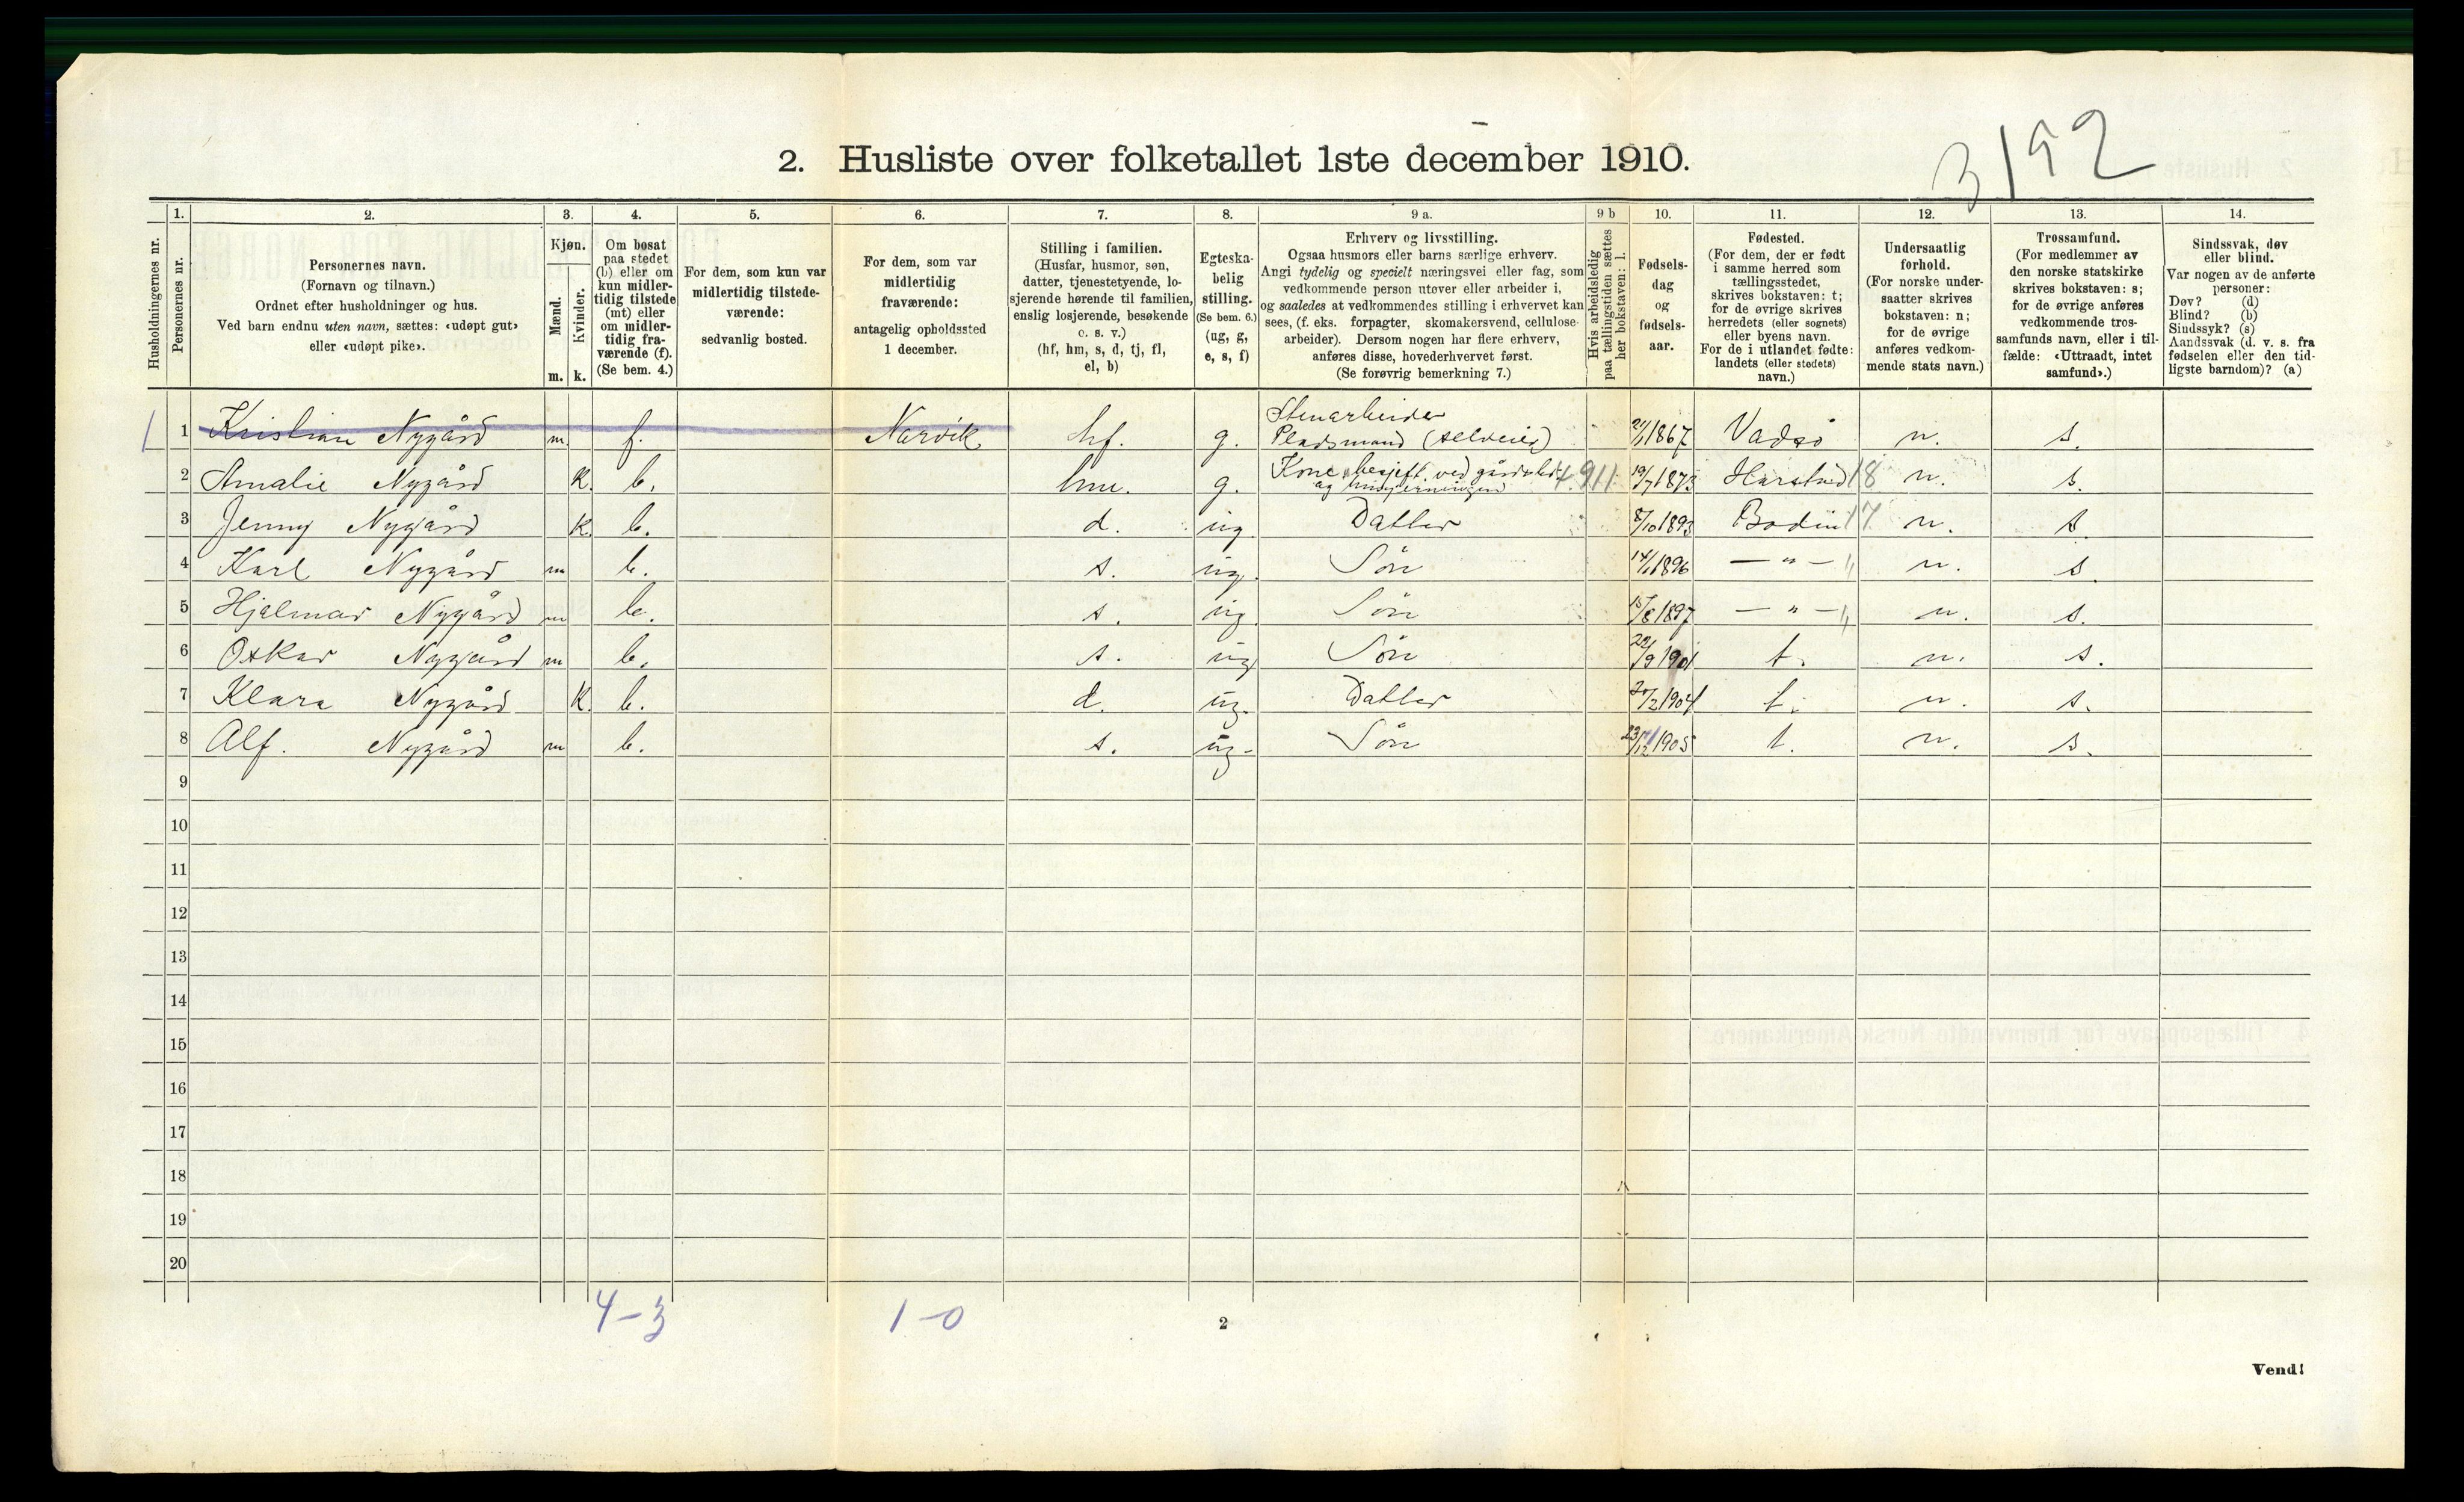 3192
2. Husliste over folketallet 1ste december 1910.
1. 2. 3. 4. 5. 6. 7. 8. 9 a. 9 b 10. 11. 12. 13. 14.
Husholdningernes nr.
Personernes nr.
Personernes navn.
(Fornavn og tilnavn.)
Ordnet efter husholdninger og hus.
Ved barn endnu uten navn, sættes: «udøpt gut»
eller «udøpt pike».
Kjøn.
Mænd.
Kvinder.
m. k.
Om bosat
paa stedet
(b) eller om
kun midler-
tidig tilstede
(mt) eller
om midler-
tidig fra-
værende (f).
(Se bem. 4.)
For dem, som kun var
midlertidig tilstede-
værende:
sedvanlig bosted.
For dem, som var
midlertidig
fraværende:
antagelig opholdssted
1 december.
Stilling i familien.
(Husfar, husmor, søn,
datter, tjenestetyende, lo-
sjerende hørende til familien,
enslig losjerende, besøkende
o. s. v.)
(hf, hm, s, d, tj, fl,
el, b)
Egteska-
belig
stilling.
(Se bem. 6.)
(ug, g,
e, s, f)
Erhverv og livsstilling.
Ogsaa husmors eller barns særlige erhverv.
Angi tydelig og specielt næringsvei eller fag, som
vedkommende person utøver eller arbeider i,
og saaledes at vedkommendes stilling i erhvervet kan
sees, (f. eks. forpagter, skomakersvend, cellulose-
arbeider). Dersom nogen har flere erhverv,
anføres disse, hovederhvervet først.
(Se forøvrig bemerkning 7.)
Hvis arbeidsledig
paa tællingstiden sættes
her bokstaven: l.
Fødsels-
dag
og
fødsels-
aar.
Fødested.
(For dem, der er født
i samme herred som
tællingsstedet,
skrives bokstaven: t;
for de øvrige skrives
herredets (eller sognets)
eller byens navn.
For de i utlandet fødte:
landets (eller stedets)
navn.)
Undersaatlig
forhold.
(For norske under-
saatter skrives
bokstaven: n;
for de øvrige
anføres vedkom-
mende stats navn.)
Trossamfund.
(For medlemmer av
den norske statskirke
skrives bokstaven: s;
for de øvrige anføres
vedkommende tros-
samfunds navn, eller i til-
fælde: «Uttraadt, intet
samfund».)
Sindssvak, døv
eller blind.
Var nogen av de anførte
personer:
Døv? (d)
Blind? (b)
Sindssyk? (s)
Aandssvak (d. v. s. fra
fødselen eller den tid-
ligste barndom)? (a)
Stenarbeider
1 1 Kristian Nygård m. f. Narvik hf. g. Pladsmand (selveier) 1867 Vadsø n. s.
2 Amalie Nygård k. b. hm. g. Kone beskjeft. ved gårdsbr. 4.911 19/7 1873 Harstad 18 n. s.
og husgjerningen
3 Jenny Nygård k. b. d. ug Datter 8/10 1893 Bodin 17 n. s.
4 Karl Nygård m b. s. ug. Søn 14/1 1896 — " — " n. s.
5 Hjalmar Nygård m b. s. ug Søn 15/8 1897 — " — " n. s.
6 Oskar Nygård m b. s. ug Søn 22/9 1901 t. n. s.
7 Klara Nygård k. b. d. ug. Datter 1904 t. n. s.
8 Alf. Nygård m b. s. ug- Søn 23/12 1905 t. n. s.
9
10
11
12
13
14
15
16
17
18
19
20
4-3 1-0
2
Vend!